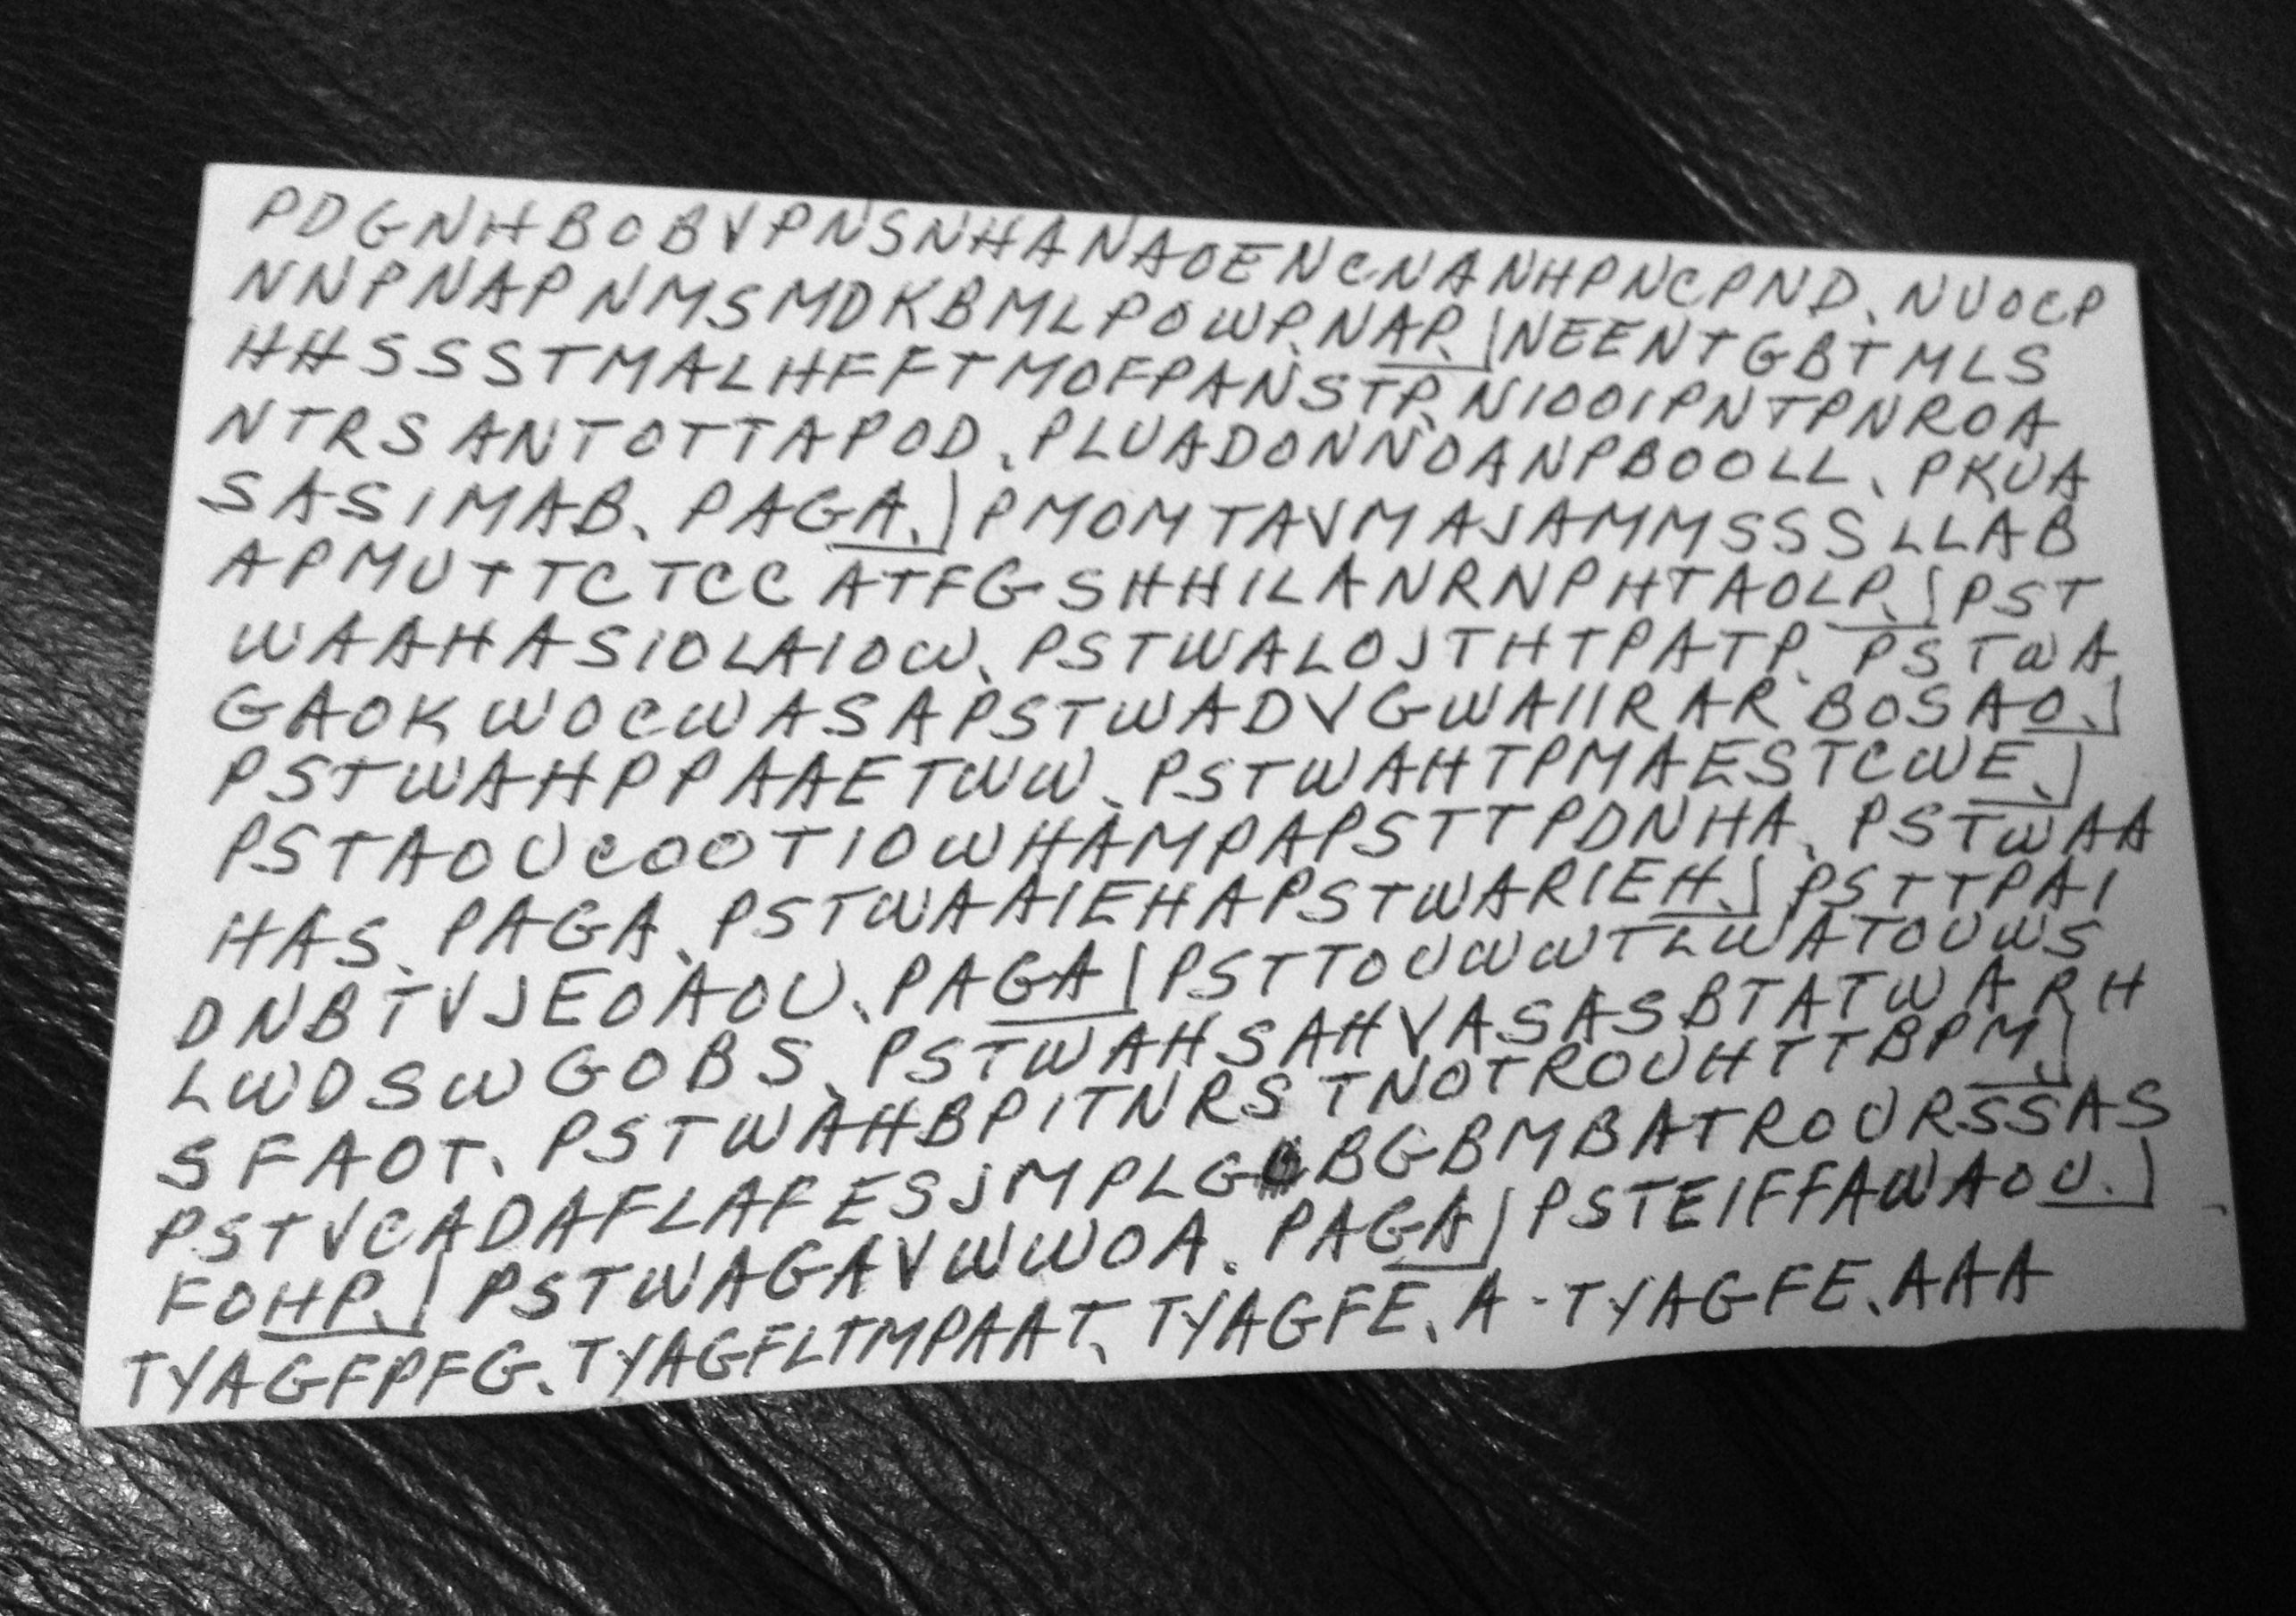 PDGNHBOBVPNSNHANAOENCNANHPNCPND. NUOCP
NNPNAPNMSMDKBMLPOWP. NAP. ) NEENTGBTMLS
HHSSSTMALHFFTMOFPANSTP. N1001PNTPNROA
NTRSANTOTTAPOD. PLUADONNOANPBOOLL. PKUA
SASIMAB. PAGA. ) PMOMTAVMAJAMMSSSLLAB
APMUTTCTCCATFGSHHILANRNPHTAOLP. ) PST
WAAHASIOLAIOW. PSTWALOJTHTPATP. PSTWA
GAOKWOCWASAPSTWADVGWAIIRARBOSAO. )
PSTWAHPPAAETWW. PSTWAHTPMAESTCWE. )
PSTAOUCOOTIOWHAMPAPSTTPDNHA. PSTWAA
HAS. PAGA. PSTWAAIEHAPSTWARIEH. ) PSTTPAI
DNBTVJEOAOU. PAGA ) PSTTOUWWTLWATOUWS
LWDSWGOBS. PSTWAHSAHVASASBTATWARH
SFAOT. PSTWAHBPITNRSTNOTROUHTTBPM. )
PSTVCADAFLAFESJMPLGBGBMBATROURSSAS
FOHP. ) PSTWAGAVWWOA. PAGA ) PSTEIFFAWAOU. )
TYAGFPFG. TYAGFLTMPAAT. TYAGFE. A-TYAGFE. AAA